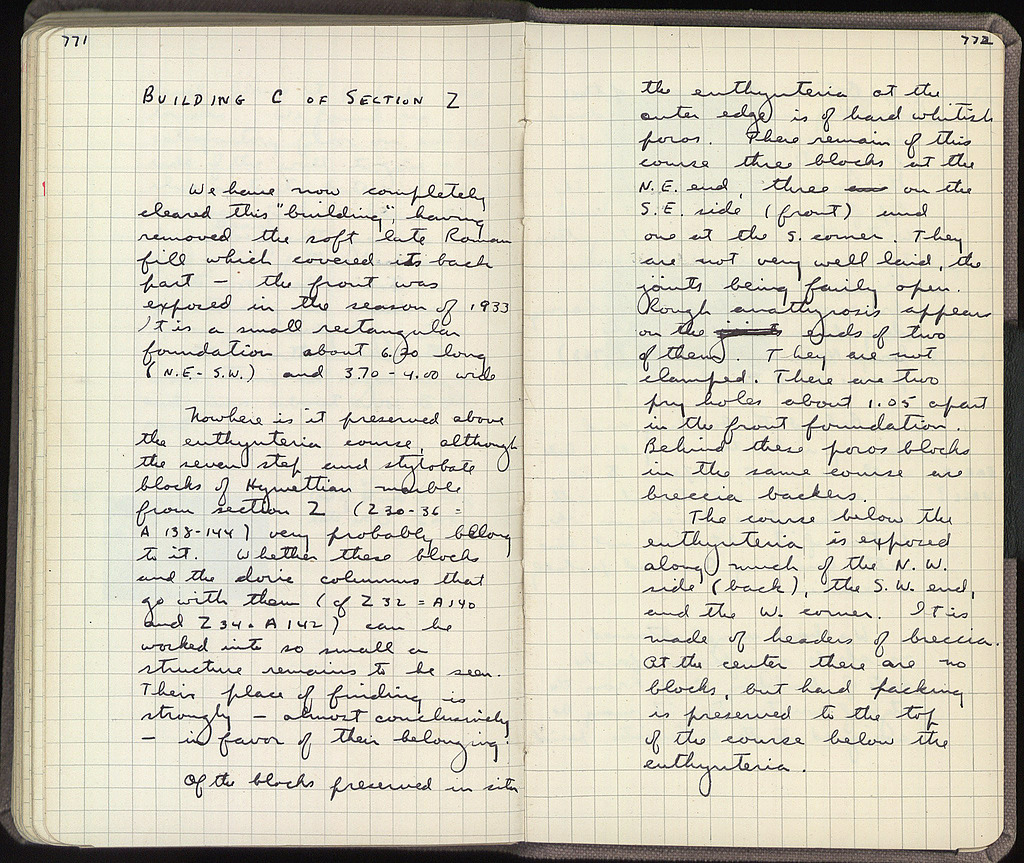 771
BUILDING C OF SECTION Z
We have now completely
cleared this "building", having
removed the soft late Roman
fill which covered its back
part – the front was
exposed in the season of 1933
It is a small rectangular
foundation about 6.70 long
(N.E.-S.W.) and 3.70-4.00 wide
Nowhere is it preserved above
the euthynteria course, although
the seven step and stylobate
blocks of Hymettian marble
from section Z (Z 30-36 =
A 138-144) very probably belong
to it. Whether these blocks
and the doric columns that
go with them (cf Z 32 = A 140
and Z 34 = A 142) can be
worked into so small a
structure remains to be seen.
Their place of finding is
strongly – almost conclusively
– in favor of their belonging.
Of the blocks preserved in situ
772
the euthynteria at the
outer edge is of hard whitish
poros. There remain of this
course three blocks at the
N.E. end, three on the
S.E. side (front) and
one at the S. corner. They
are not very well laid, the
joints being fairly open.
Rough anathyrosis appears
on the ends of two
of them. They are not
clamped. There are two
pry holes about 1.05 apart
in the front foundation.
Behind these poros blocks
in the same course are
breccia backers.
The course below the
euthynteria is exposed
along much of the N.W.
side (back), the S.W. end,
and the W. corner. It is
made of headers of breccia.
At the center there are no
blocks, but hard packing
is preserved to the top
of the course below the
euthynteria.